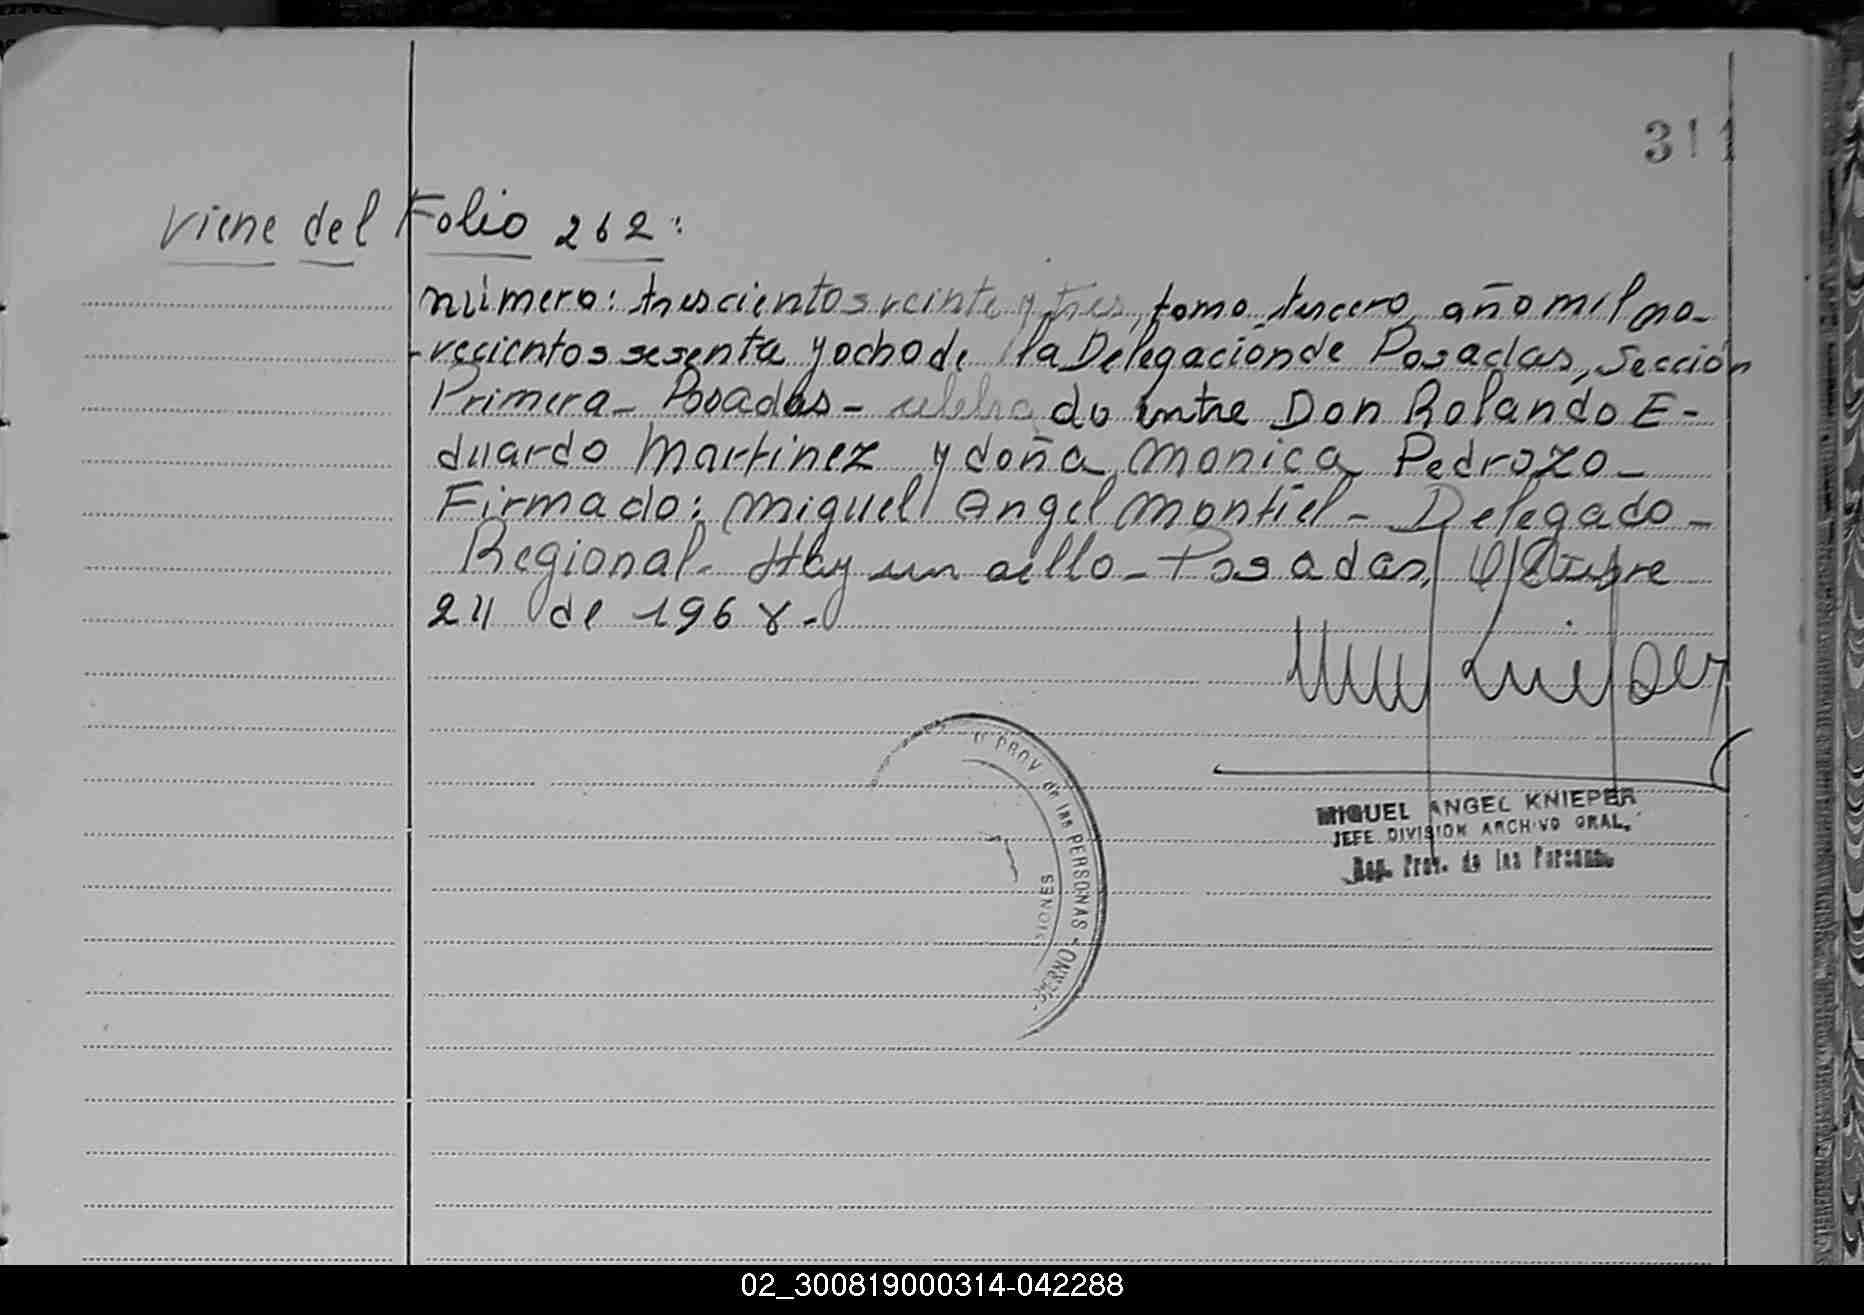 311
Viene del Folio 262:
número: trescientos veinte y tres, tomo tercero, año mil no-
-vecientos sesenta y ocho de la Delegación de Posadas, Sección
Primera - Posadas - celebrado entre Don Rolando E-
duardo Martinez y doña Monica Pedrozo -
Firmado: Miguel Angel Montiel - Delegado -
Regional - Hay un sello - Posadas, Octubre
24 de 1968.-
PROV de las PERSONAS -
MIGUEL ANGEL KNIEPER
JEFE DIVISION ARCHIVO GRAL.
Rep. Prov. de las Personas
02_300819000314-042288